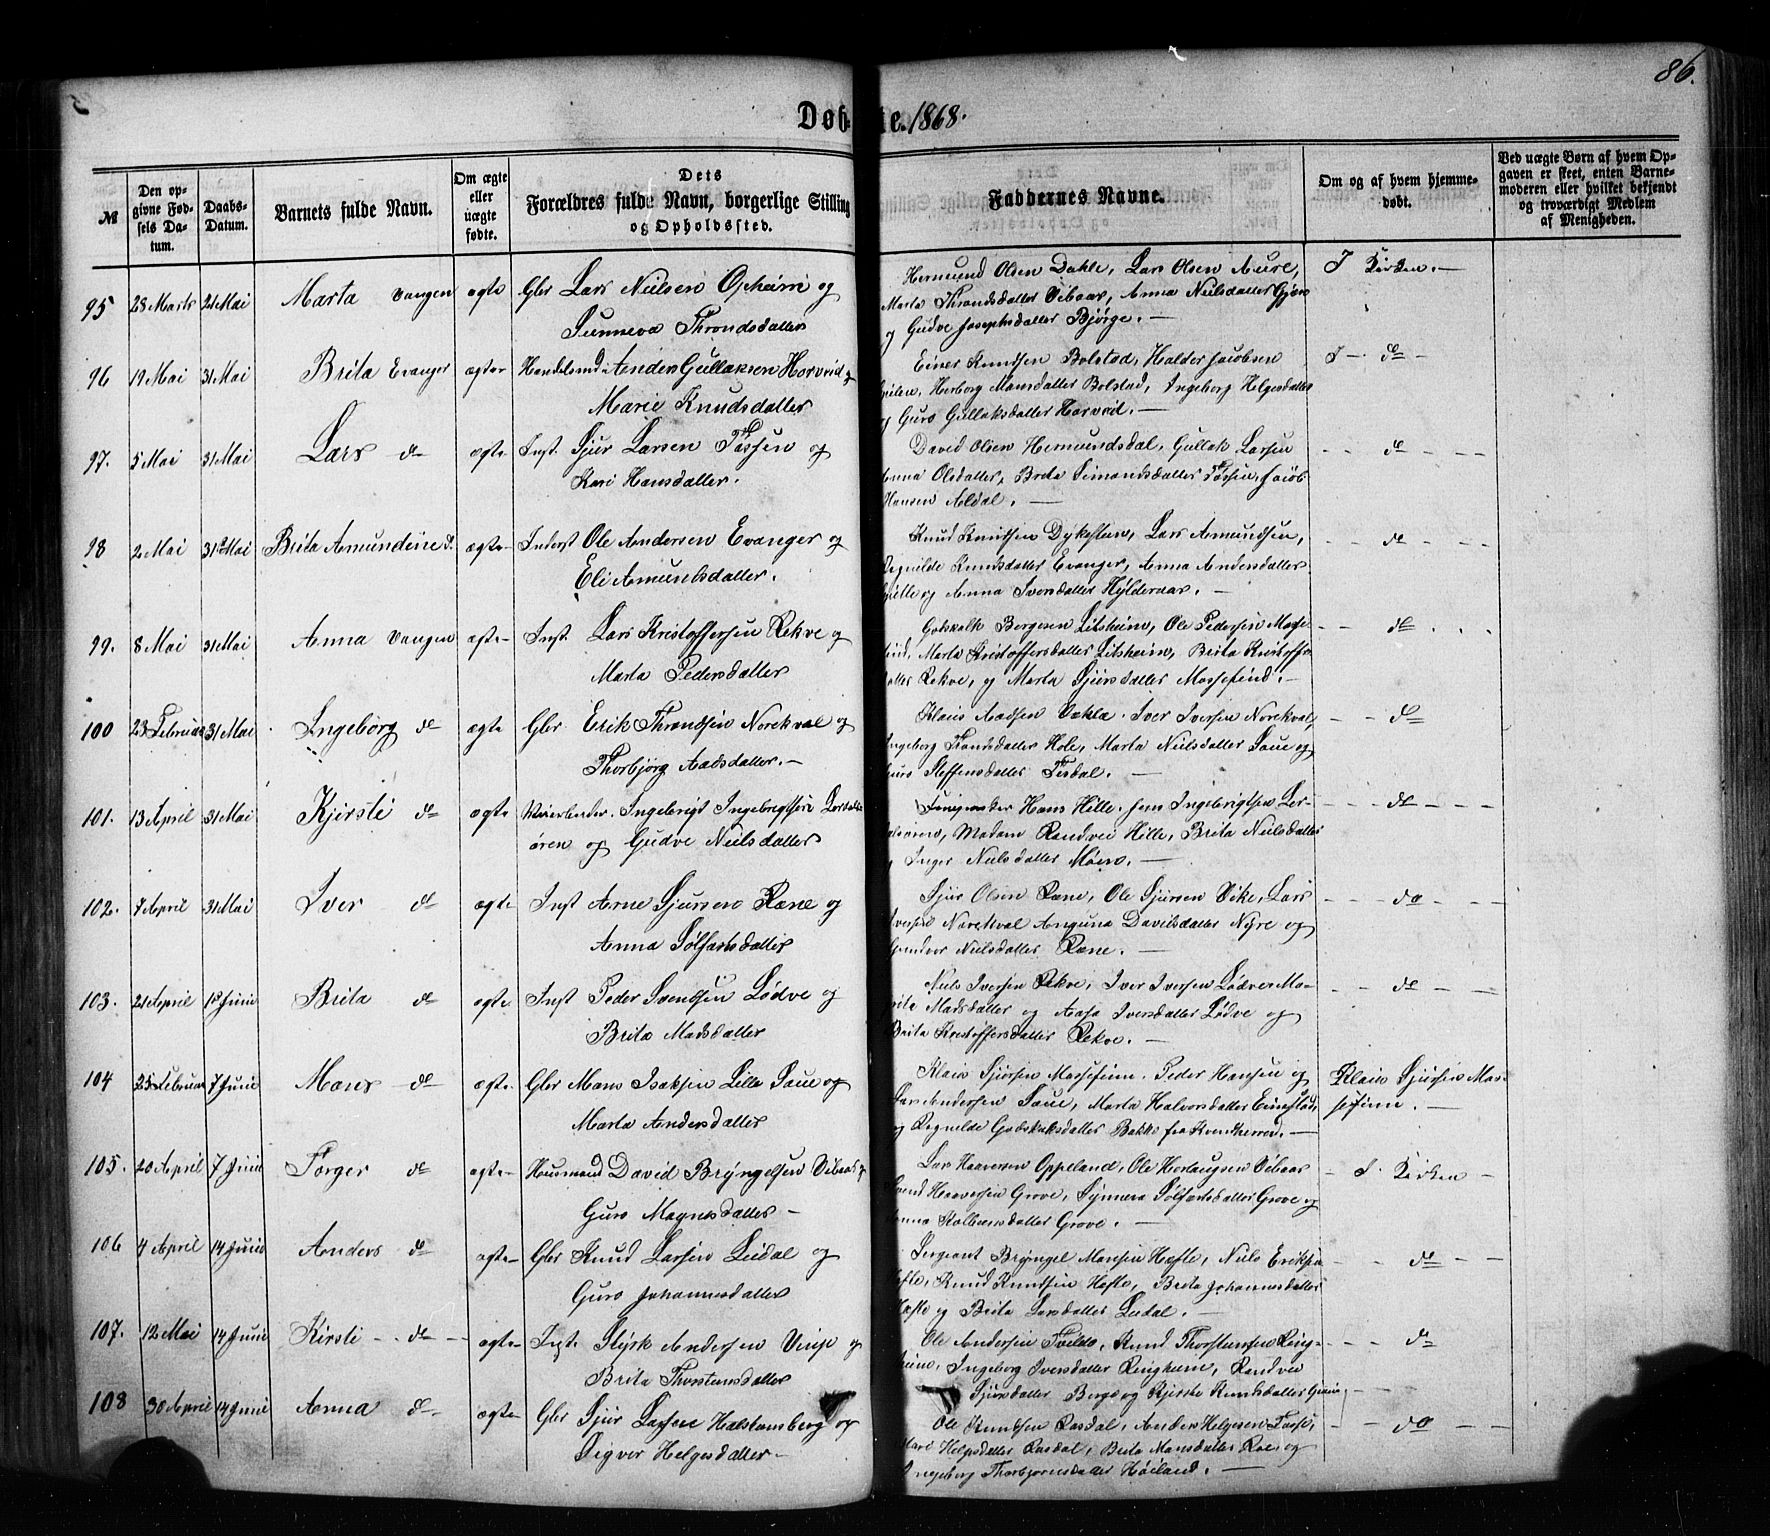 86.
Døbte. 1868.
№
Den opgivne Fødsels Datum.
Daabs-Datum.
Barnets fulde Navn.
Om ægte eller uægte fødte.
Dets Forældres fulde Navn, borgerlige Stilling og Opholdssted.
Faddernes Navne.
Om og af hvem hjemmedøbt.
Ved uægte Børn af hvem Opgaven er skeet, enten Barnemoderen eller hvilket bekjendt og troværdigt Medlem af Menigheden.
95 28 Marts 21 Mai Marta Vangen ægte Gbr Lars Nielsen Opheim og
Sunneva Throndsdatter
Hermund Olsen Dahle, Lars Olsen Aure,
Marta Throndsdatter Vibaar, Anna Nielsdatter
og Gudve Josephsdatter Bjørge. —
I Kirken. —
96 19 Mai 31 Mai Brita Evanger ægte Handelsmd Anders Gullaksen Horvid og
Marie Knudsdatter
Einer Knudsen Bolstad, Haldor Jacobsen
Herborg Mansdatter Bolstad, Ingeborg Helgesdatter
og Guro Gullaksdatter Horvid. —
I — do —
97. 5 Mai 31 Mai Lars do ægte Inst. Sjur Larsen Fosse og
Kari Hansdatter.
David Olsen Hemundsdal, Gullak Larsen
Anna Olsdatter, Brita Simonsdatter Jacob
Hansen Aldal. —
— — do — — —
98 2 Mai 31 Mai Brita Amundine do. ægte Inderst Ole Andersen Evanger og
Eli Amundsdatter.
Knud Knudsen Dykesteen, Lars Amundsen,
Ragnilde Knudsdatter Evanger, Anna Andersdatter
og Anna Iversdatter
— — do — — —
99. 8 Mai 31 Mai Anna Vangen ægte Inst. Lars Kristoffersen Rekve og
Marta Pedersdatter
Gotskalk Bergesen Litsheim, Ole Pedersen
Marta Kristoffersdatter Litsheim, Brita Kristoffers
datter Rekve, og Marta Sjursdatter
— — do
100 23 Februar 31 Mai Ingeborg do ægte Gbr Erik Throndsen Norekval og
Thorbjørg Aadsdatter. —
Klaus Aadsen Væhle, Iver Iversen Norekval,
Ingeborg Trondsdatter Hole, Marta Nielsdatter Saue og
Guro Steffensdatter Tesdal. —
— — do
101. 13 April 31 Mai Kjersti do ægte Ingebrigt Ingebrigtsen
øren og Gudve Nielsdatter
Hans Hille, Jens Ingebrigtsen
Madam Randvei Hille, Brita Nielsdatter
og Inger Nielsdatter Møen. —
— — do — — —
102. 7 April 31 Mai Iver do ægte Inst Arne Sjursen Rene og
Anna Sølfæstsdatter
Sjur Olsen Rene, Ole Sjursen Vike, Lars
Iversen Norekval Anguna Davidsdatter Nyre og
Gundvor Nielsdatter Rene. —
— — do — — —
103. 21 April 1 Juni Brita do ægte Inst Peder Svendsen Lødve og
Brita Madsdatter
Niels Iversen Rekve, Iver Iversen Lødve
Madsdatter og Aasa Iversdatter Lødve og
Brita Kristoffersdatter Rekve. —
— — do — — —
104 25 Februar 7 Juni Mons do ægte Gbr Mons Isaksen Lille Saue og
Marta Andersdatter
Klaus Sjursen Peder Hansen og
Lars Andersen Saue, Marta Halvorsdatter
og Ragnilde Gotskalksdatter Bakke fra Kvindherred. —
Klaus Sjursen Mos-
sefinne. —
105. 20 April 7 Juni Torger do ægte Husmand David Bryngelsen Vibaar og
Guro Magnesdatter —
Lars Haavarsen Oppeland, Ole Herlaugsen Vibaar
Svend Haaversen Grove, Synneva Sølfæstsdatter Grove og
Anna Kolbensdatter Grove. —
— I. Kirken —
106 4 April 14 Juni Anders do ægte Gbr Knud Larsen Leidal og
Guro Johannesdatter
Sergeant Bryngel Monsen Hæfte, Niels Eriksen
Hæfte, Knud Knudsen Hæfte, Brita Johannesdatter
Hæfte og Brita Larsdatter Leidal. —
— — do — —
107. 12 Mai 14 Juni Kirsti — do — ægte Inst. Styrk Andersen Vinje og
Brita Thorstensdatter
Ole Andersen Tveite, Knud Thorstensen Ring-
heim, Ingeborg Iversdatter Ringheim, Randvei
Sjursdatter Berge og Kjersti Knudsdatter
— — do
108 30 April 14 Juni Anna do ægte Gbr Sjur Larsen Halstensberg og
Sigver Helgesdatter —
Ole Knudsen Rasdal, Anders Helgesen Fosse,
Mari Helgesdatter Rasdal, Brita Mansdatter og
Ingeborg Thorbjørnsdatter Høiland. —
— — do — —